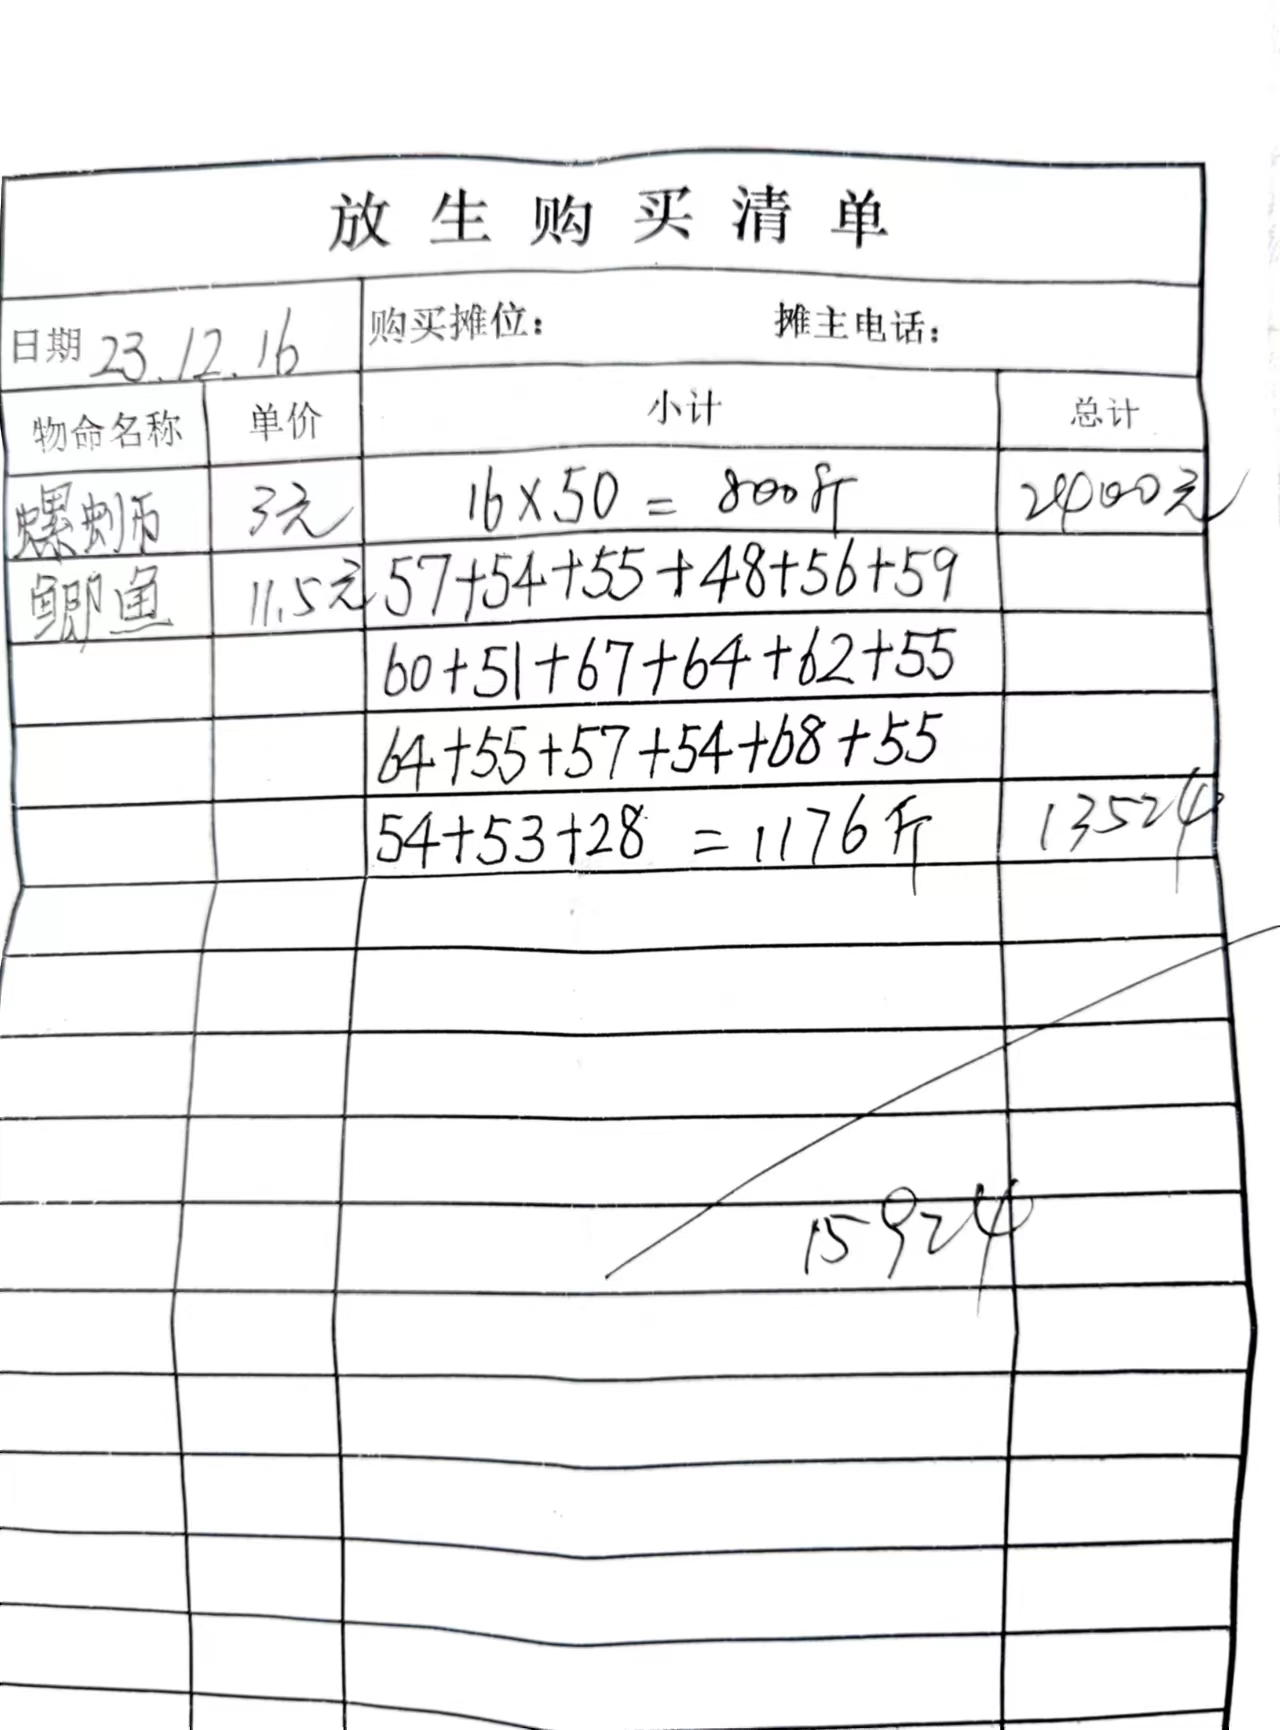 放生购买清单
日期 23.12.16 购买摊位： 摊主电话：
物命名称 单价 小计 总计
螺蛳 3元 16×50=800斤 2400元
鲫鱼 11.5元 57+54+55+48+56+59
60+51+67+64+62+55
64+55+57+54+68+55
54+53+28=1176斤 13524
15924